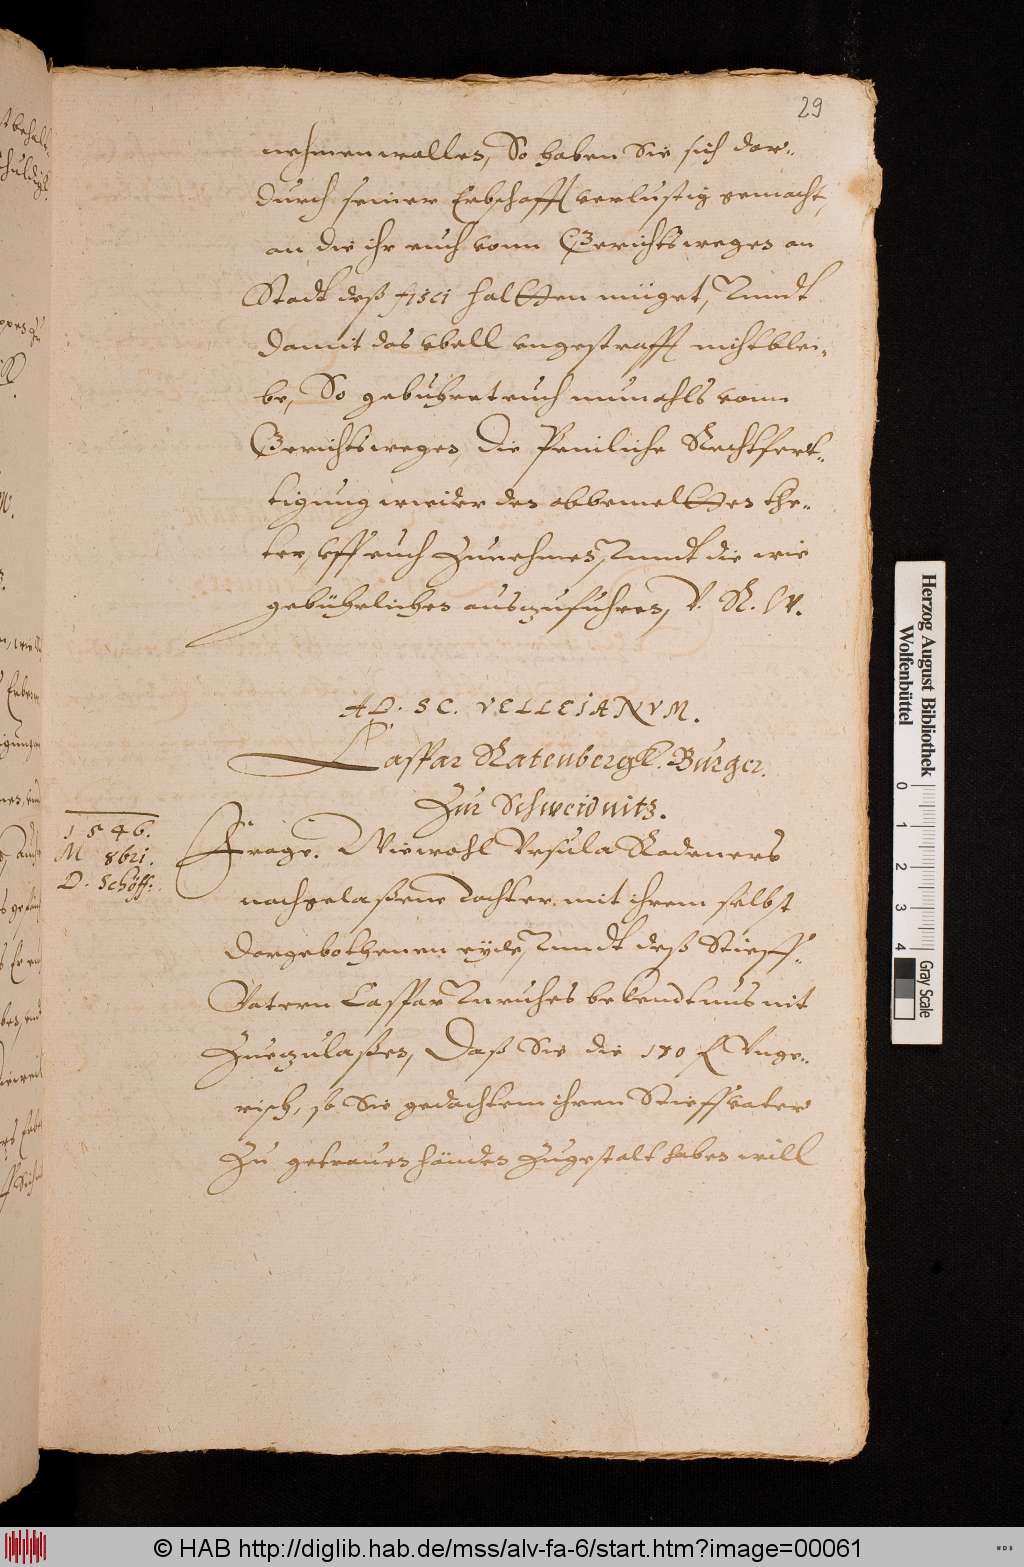 29
nehmen wollen, So haben Sie sich dar-
durch seiner Erbschafft verlustig gemacht,
an die ihr euch vonn Gerichts wegen an
Stadt deß fisci haltten müget, Vnndt
damit das vbell vngestrafft nicht blei-
be, So gebühret euch nunmahls vonn
Gerichts wegen, die Peinliche Rechtfert-
tigung wieder den obbemeltten the-
ter, vff euch Zunehmen, Vnndt die wie
gebührlichen auszufuhren, V. R. W.
AD. SC. VELLEIANVM.
Caspar Ratenbergk. Burger.
Zur Schweidnitz.
1546.
M 8bri.
D. Schöff:
Frage. Wiewohl Vrsula Rodeners
nachgelaßene Tochter mit ihrem selbst
dargebothenen eyde, Vnndt deß Stieff-
Vatern Caspar bekendtnus mit
Zuezulaßen, Daß Sie die 170 fl Vnge-
risch, so Sie gedachtem ihren Stieffvater
Zu getrauen händen Zugestalt haben will
Herzog August Bibliothek
Wolfenbüttel
0 1 2 3 4
Gray Scale
© HAB http://diglib.hab.de/mss/alv-fa-6/start.htm?image=00061
WDB